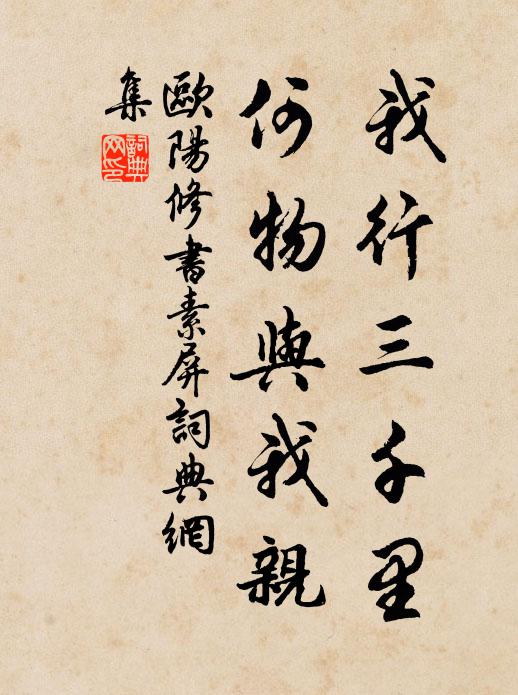 我行三千里
何物與我親
歐陽修書素屏詞典網
集
詞典
网印